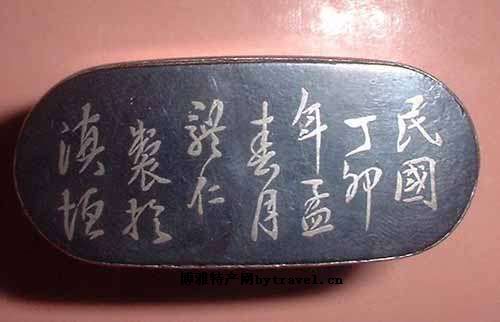 民國
丁卯
年孟
春月
仁
製於
滇垣
博雅特产网bytravel.cn